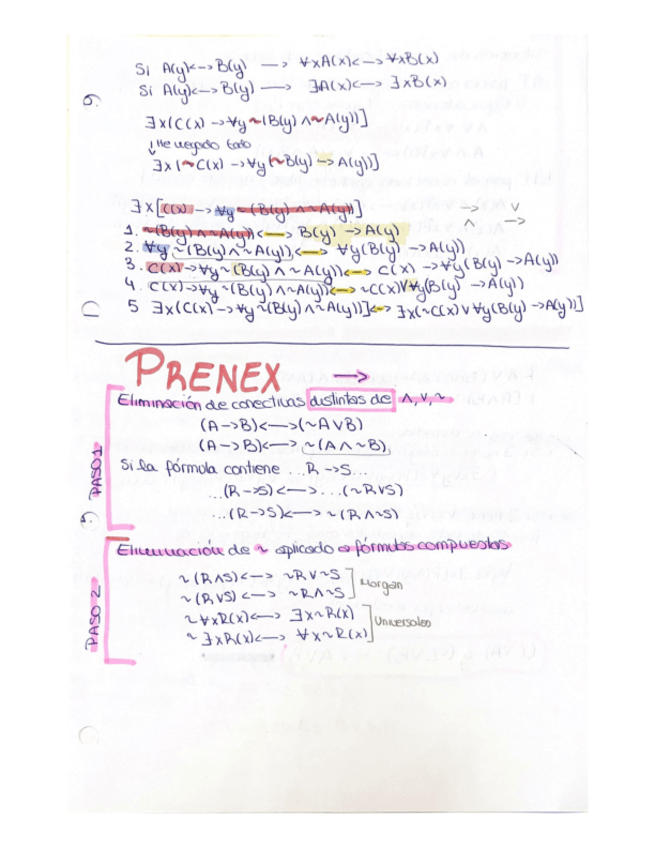 Si A(y)<-->B(y) —> ∀xA(x)<—>∀xB(x)
Si A(y)<-->B(y) —> ∃A(x)<—> ∃xB(x)
∃x(C(x) ->∀y ~(B(y) ∧~A(y))]
↓ He negado todo
∃x(~C(x) ->∀y(~B(y) -> A(y))]
∃x[C(x) -> ∀y ~(B(y) ∧ ~A(y))]
-> ∨
->
1. ~(B(y) ∧ ~A(y)) <—> B(y) -> A(y)
2. ∀y ~(B(y) ∧ ~A(y)) <—> ∀y(B(y) -> A(y))
3. C(x) -> ∀y ~ (B(y) ∧ ~A(y)) <-> C(x) -> ∀y(B(y) -> A(y))
4. C(x) -> ∀y ~ (B(y) ∧ ~A(y)) <-> ~C(x)∨∀y(B(y) -> A(y))
5 ∃x(C(x) -> ∀y ~(B(y) ∧ ~A(y))] <-> ∃x(~C(x) ∨ ∀y(B(y) -> A(y))]
PRENEX ->
Eliminación de conectivas distintas de ∧, ∨, ~
PASO 1
(A->B)<—>(~A∨B)
(A->B)<—> ~(A∧~B)
Si la fórmula contiene ...R ->S...
...(R ->S)<—>...(~R∨S)
...(R->S)<—> ~(R∧~S)
Eliminación de ~ aplicado a fórmulas compuestas
PASO 2
~(R∧S)<—> ~R∨~S
~(R∨S) <—> ~R∧~S
Morgan
~∀xR(x)<—> ∃x~R(x)
~∃xR(x)<—> ∀x~R(x)